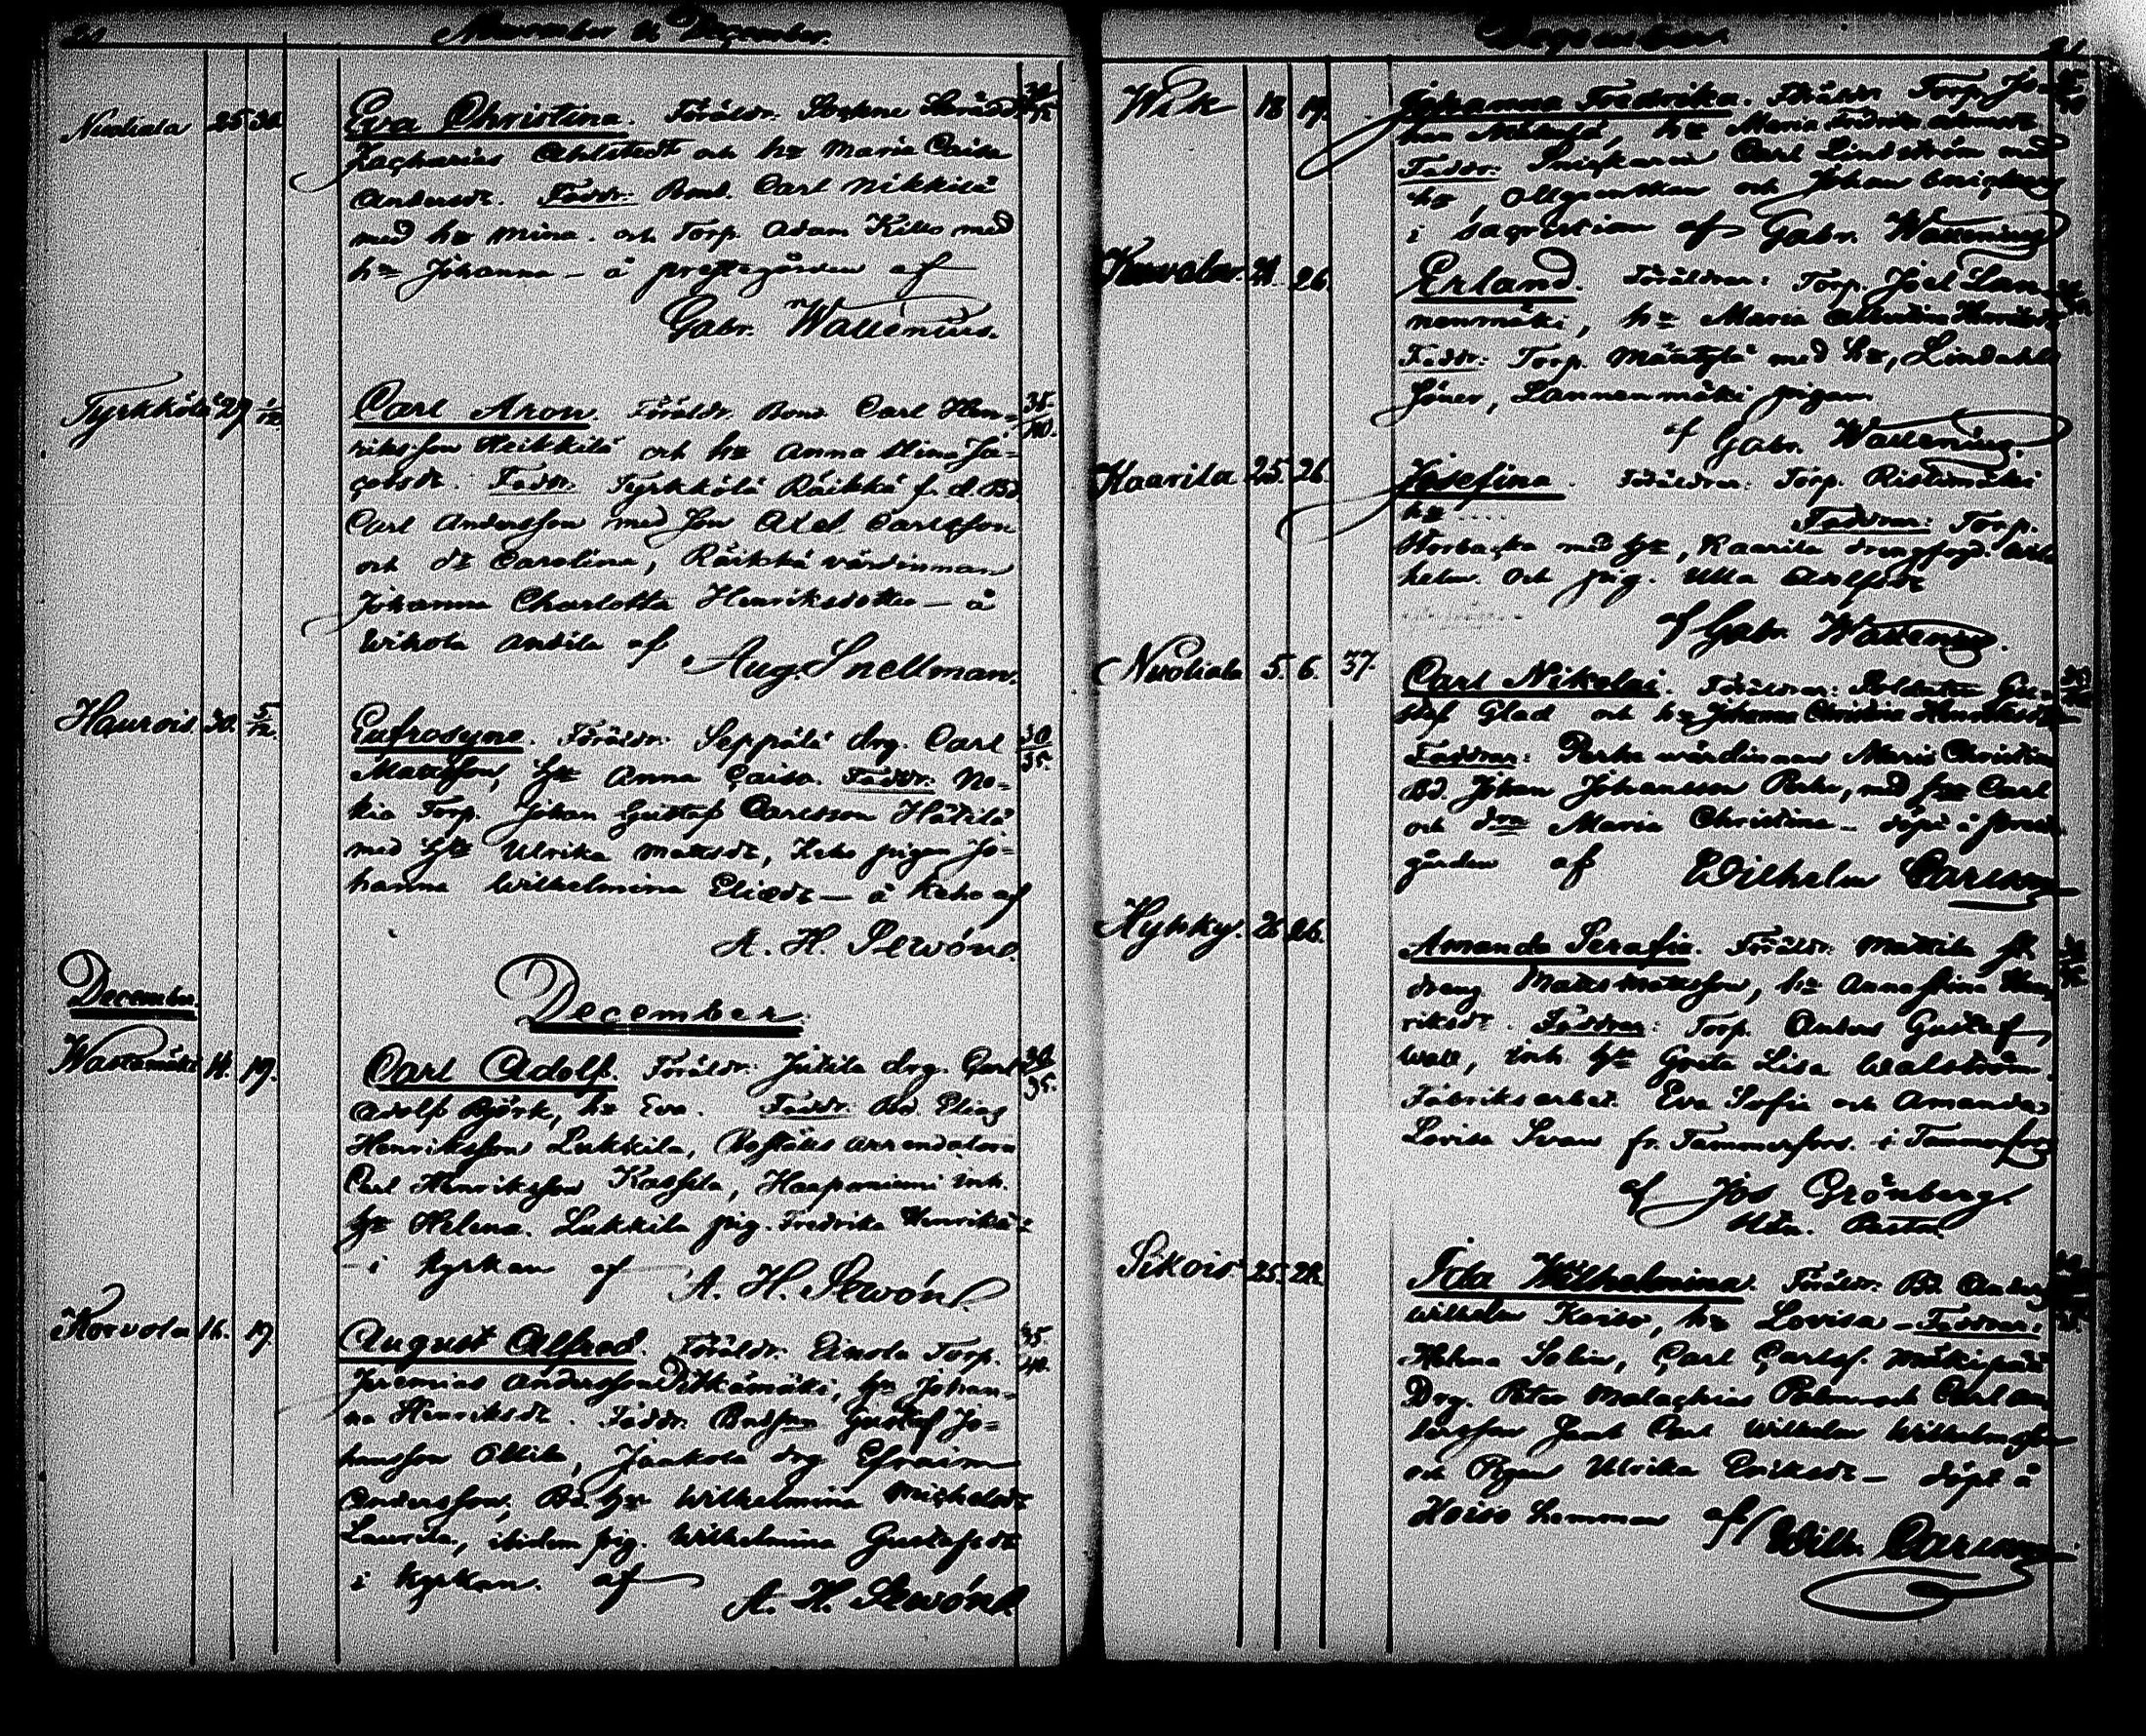 20
November & December.
Nuoliala 25 30
Eva Christina. Föräldr. Sockne Skrädd. 30/35
Zacharias Ahlstedt och hu Maria Caisa
Andersdr. Faddr. Bond. Carl Nikkilä
med hu Mina. och Torp. Adam Killo med
hu Johanna — å prestgården af
Gabr. Wallenius.
Tyrkkölä 29 1/12
Carl Aron. Föräldr. Bond. Carl Hen- 35/40.
riksson Heikkilä och hu Anna Stina Ja-
cobsdr. Faddr. Tyrkkölä Räikkä f. d. Bd
Carl Andersson med son Axel Carlsson
och dr Carolina, Räikkä värdinnan
Johanna Charlotta Henriksdotter — å
Wikola Anttila af
Aug. Snellman.
Haurois 30. 5/12.
Eufrosyne. Föräldr. Seppälä drg. Carl 30/35.
Mattsson, hu Anna Caisa. Faddr. No-
kia Torp. Johan Gustaf Carlsson Hätilä
med hu Ulrika Mattsdr, Keho pigan Jo-
hanna Wilhelmina Eliædr — å Keho af
A. H. Slewóns.
December.
December
Wastamäki 14. 19.
Carl Adolf. Föräldr. Jutila drg. Carl 30/35.
Adolf Björk, hu Eva. Faddr. Bd. Elias
Henriksson Lukkila, Boställs arrendatorn
Carl Henriksson Kassila, Haaponiemi inh.
hu Helena. Lukkila pig. Fredrika Henriks-
i kyrkan af A. H. Slewóns.
Korvola 16. 19.
August Alfred. Föräldr. Einola Torp. 35/40.
Jeremias Andersson Pitkämäki, hu Johan-
na Henriksdr. Faddr. Bndson Gustaf Jo-
hansson Ollila, Jaakola drg Efraim
Andersson, Bd. hu Wilhelmina Michelsdr
Laurila, ibidem pig. Wilhelmina Gustafsdr
i kyrkan. af A. H. Slewóns.
December
21
Wik 18 19.
Johanna Fredrika. Föräldr. Torp. Jo-
han, hu Maria Fredrika
Faddr. Carl Lindström med
hu, och Johan
i sacristian af Gabr. Wallenius
21. 26
Erland. Föräldrar: Torp. Joel Lan-
nenmäki, hu Maria
Faddr: Torp. Mäntylä med hu, Lindahls
Lannenmäki pigan
af Gabr. Wallenius.
Kaarila 25. 26.
Josefina. Föräldrar: Torp. Ristimäki
hu .... Faddrar: Torp.
med hu, Kaarila Wil-
helm. Och pig. Ulla Adolfsdr
af Gabr. Wallenius.
Nuoliala 5. 6. 37.
Carl Nikolai. Föräldrar: Soldaten Gu-
staf Glad och hu Johanna Christina Henriksdr
Faddrar: Perhe wärdinnan Maria Christina
Bd. Johan Johansson Perhe, med son Carl
och dra Maria Christina — döpt å prest-
gården af Wilhelm Carlsson
Hyhky. 26.
Amanda Serafia. Föräldr. Mattila fr.
dreng Matts Mattsson, hu Anna Stina Hen-
riksdr. Faddrar: Torp. Anders Gustaf
Wall, inh. hu Greta Lisa Walström.
Fabriksarbet. Eva Sofia och Amanda
Lovisa Svans fr. Tammerfors. i Tammerfors
af Jos Grönberg.
Pastor.
Sikois. 25. 28.
Ida Wilhelmina. Föräldr. Bd. Anders
Wilhelm Koiso, hu Lovisa — Faddrar:
Helena Salin, Carl Carlss. Mäkipää
Drg. Peter Malachias och Carl An-
dersson Carl Wilhelm Wilhelmsson
och Pigan Ulrika Eriksdr — döpt å
Koiso hemman af Wilh. Carlsson